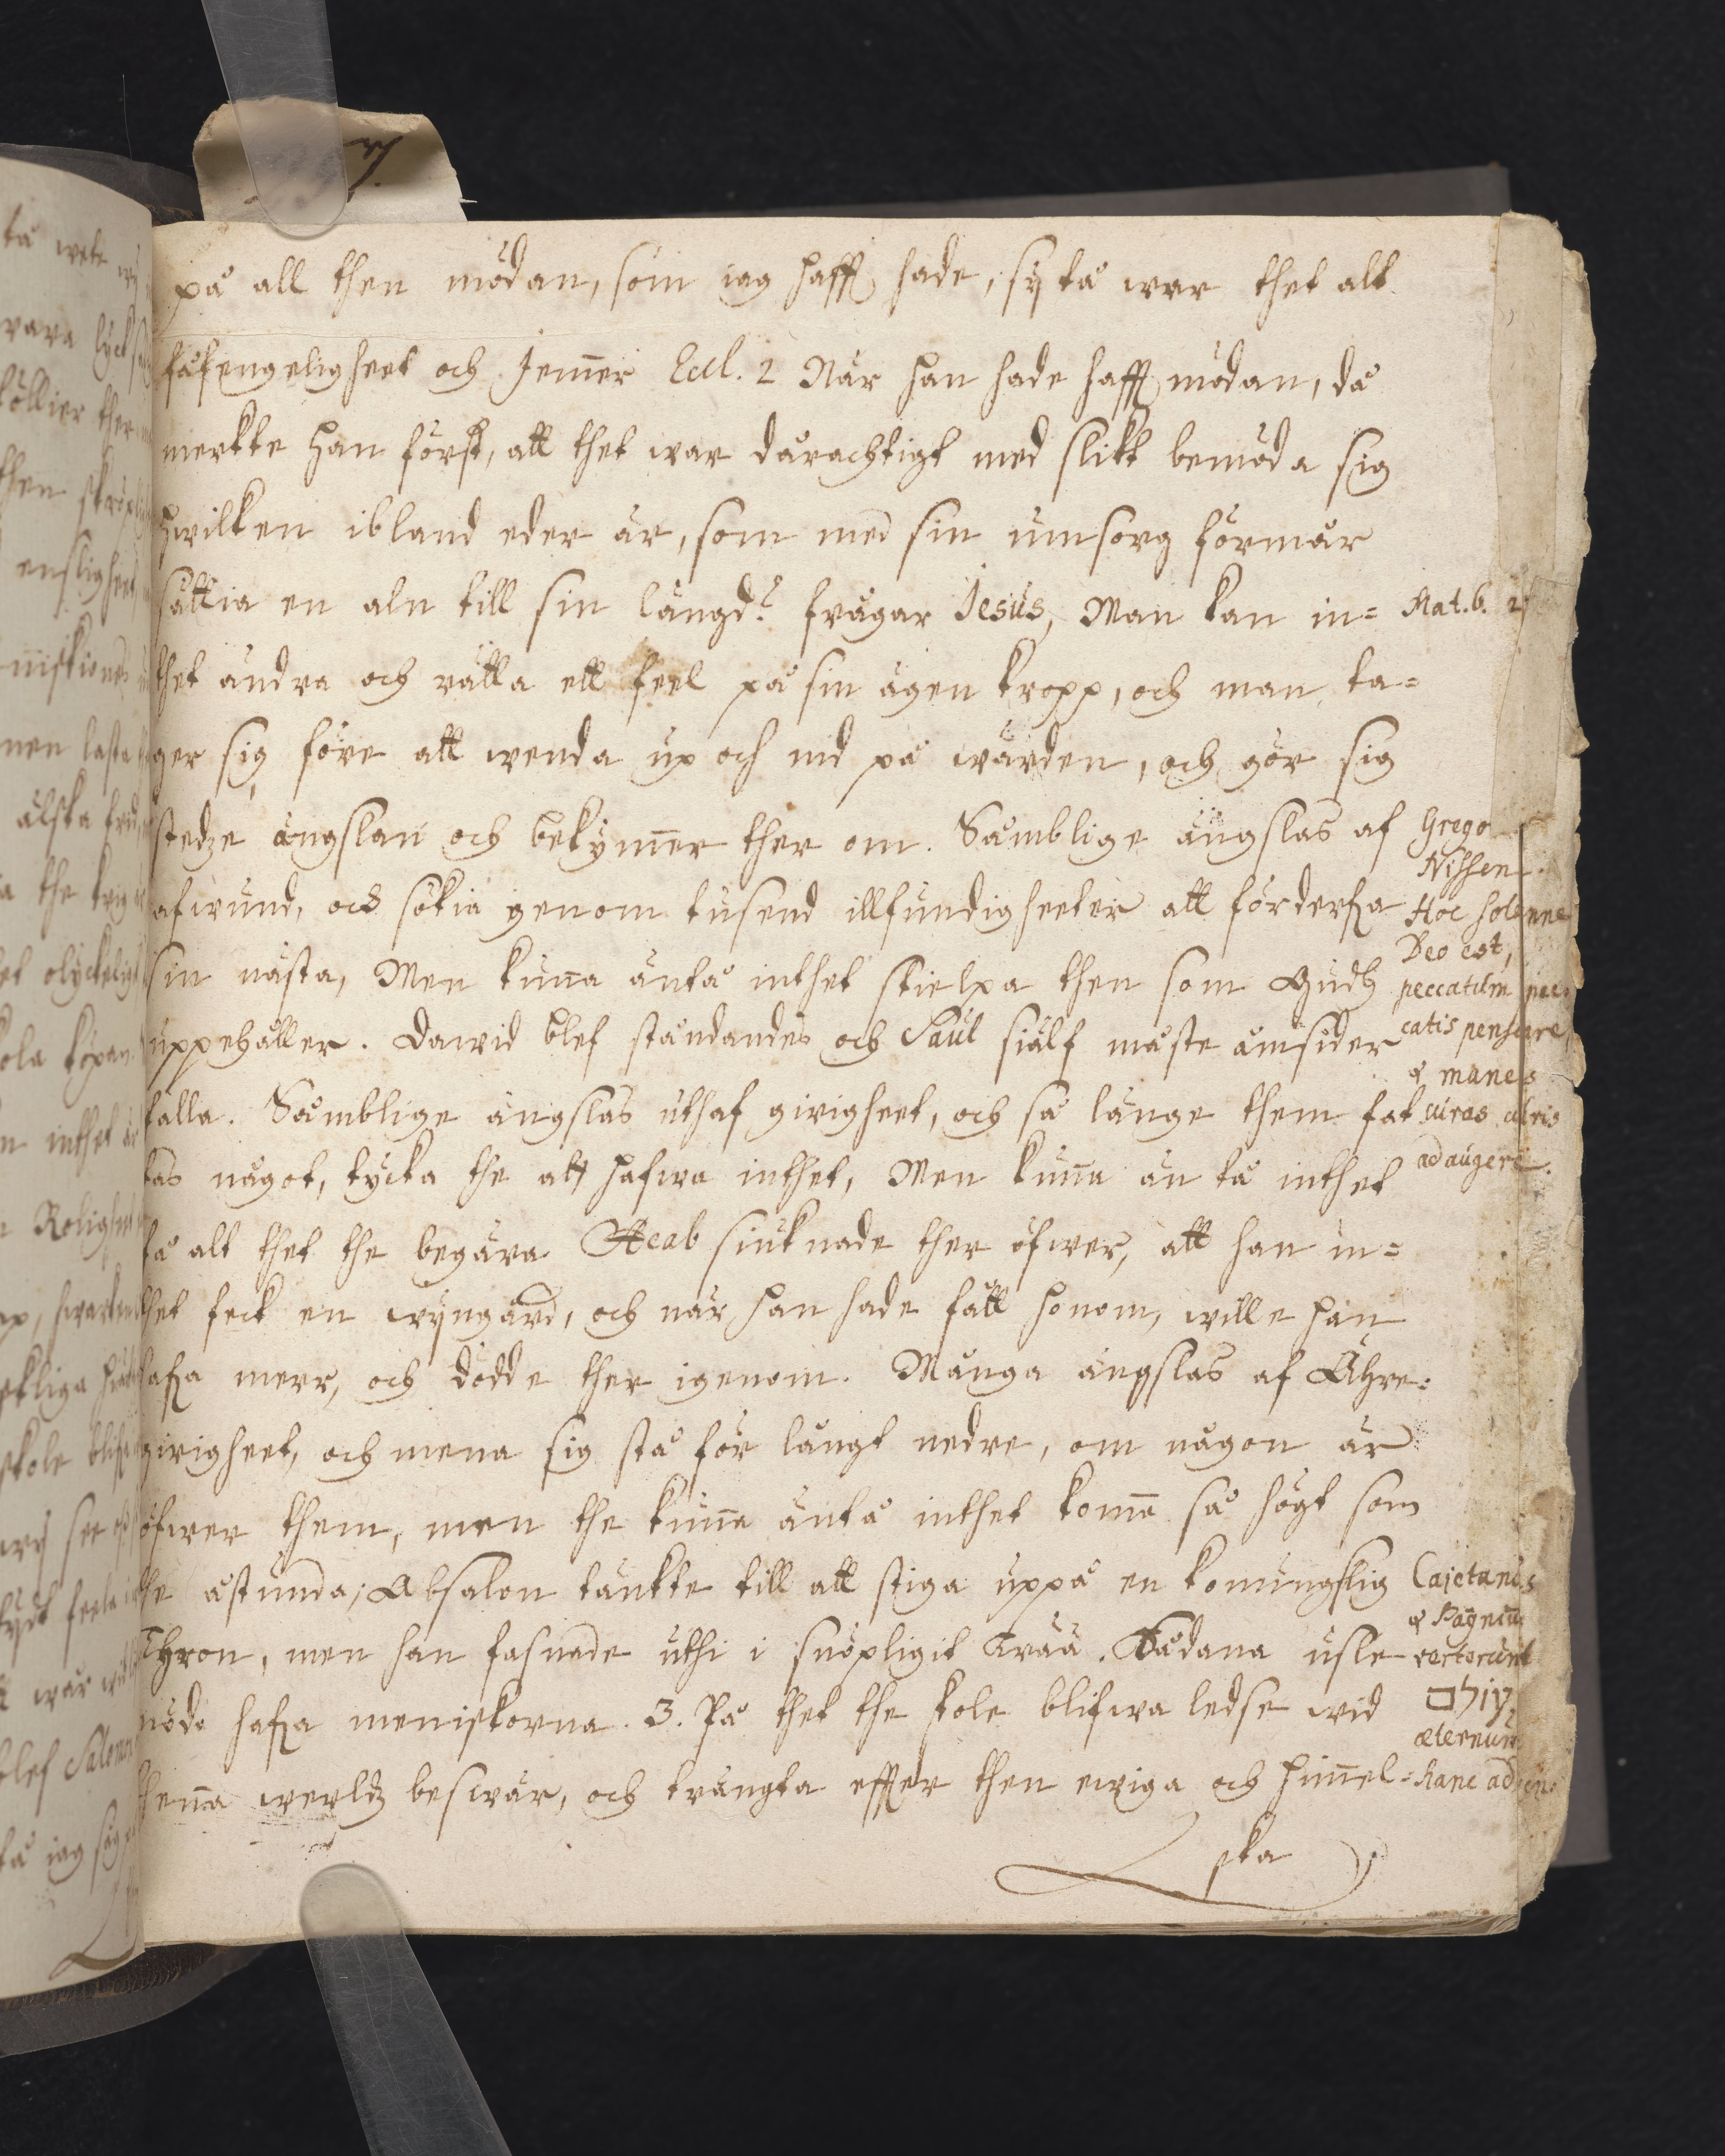 på all then mödan, som iag hafft hade, sij tå war thet alt
fåfengeligheet och Jemer Eccl. 2 När han hade hafft mödan, då
merkte han först, att thet war dårachtigt med slikt bemöda sig
hwilken ibland eder är, som med sin umsorg förmår
sättia en aln till sin längd? frågar Jesus, Man kan in=
thet ändra och rätta ett feel på sin ägen kropp, och man ta=
ger sig före att wenda up och nid på wärden, och gör sig
stedze ängslan och bekymer ther om. Somblige ängslas af
afwund, och sökia genom tusend illfundigheeter att förderfwa
sin nästa, Men kuna äntå inthet stielpa then som Gudh
uppehåller. Dawid blef ståndandes och Saul siälf måste omsider
falla. Somblige ängslas uthaf girigheet, och så länge them fat
tas något, tycka the att hafwa inthet, Men kuna än tå inthet
få alt thet the begära. Acab siuknade ther öfwer, att han in=
thet feck en wijngård, och när han hade fått honom, wille han
hafwa meer, och dödde ther igenom. Många ängslas af Ähre=
girigheet, och mena sig stå för långt nedre, om någon är
öfwer them, men the kuna äntå inthet koma så högt som
the åstunda; Absalon tänkte till att stiga uppå en konungslig
Thron, men han fasnade uthi i snöpligit trää. Sådana usle
nöde hafwa meniskorna. 3. På thet the skole blifwa ledse wid
thenna werldz beswär, och trängta effter then ewiga och himel=
ska
Mat. 6. 27
Grego
Nissen.
Hoc solenne
Deo est,
peccatum pec
catis pensare
& mune
ad augere.
Cajetanus
& Pagnin
verterunt
עולם
æternum